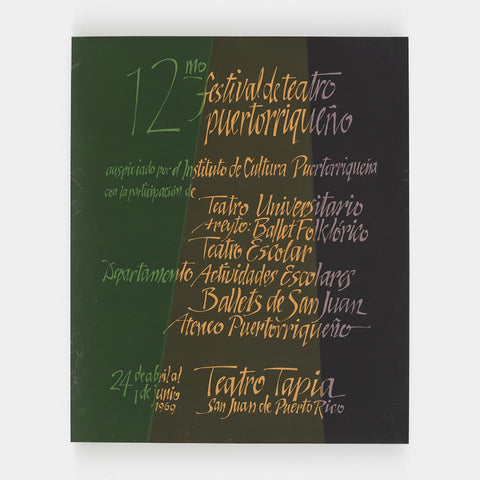 12mo festival de teatro
puertorriqueño
auspiciado por el Instituto de Cultura Puertorriqueña
con la participación de
Teatro Universitario
Areyto: Ballet Folklórico
Teatro Escolar
Departamento Actividades Escolares
Ballets de San Juan
Ateneo Puertorriqueño
24 de abril al
1 de junio
1969
Teatro Tapia
San Juan de Puerto Rico